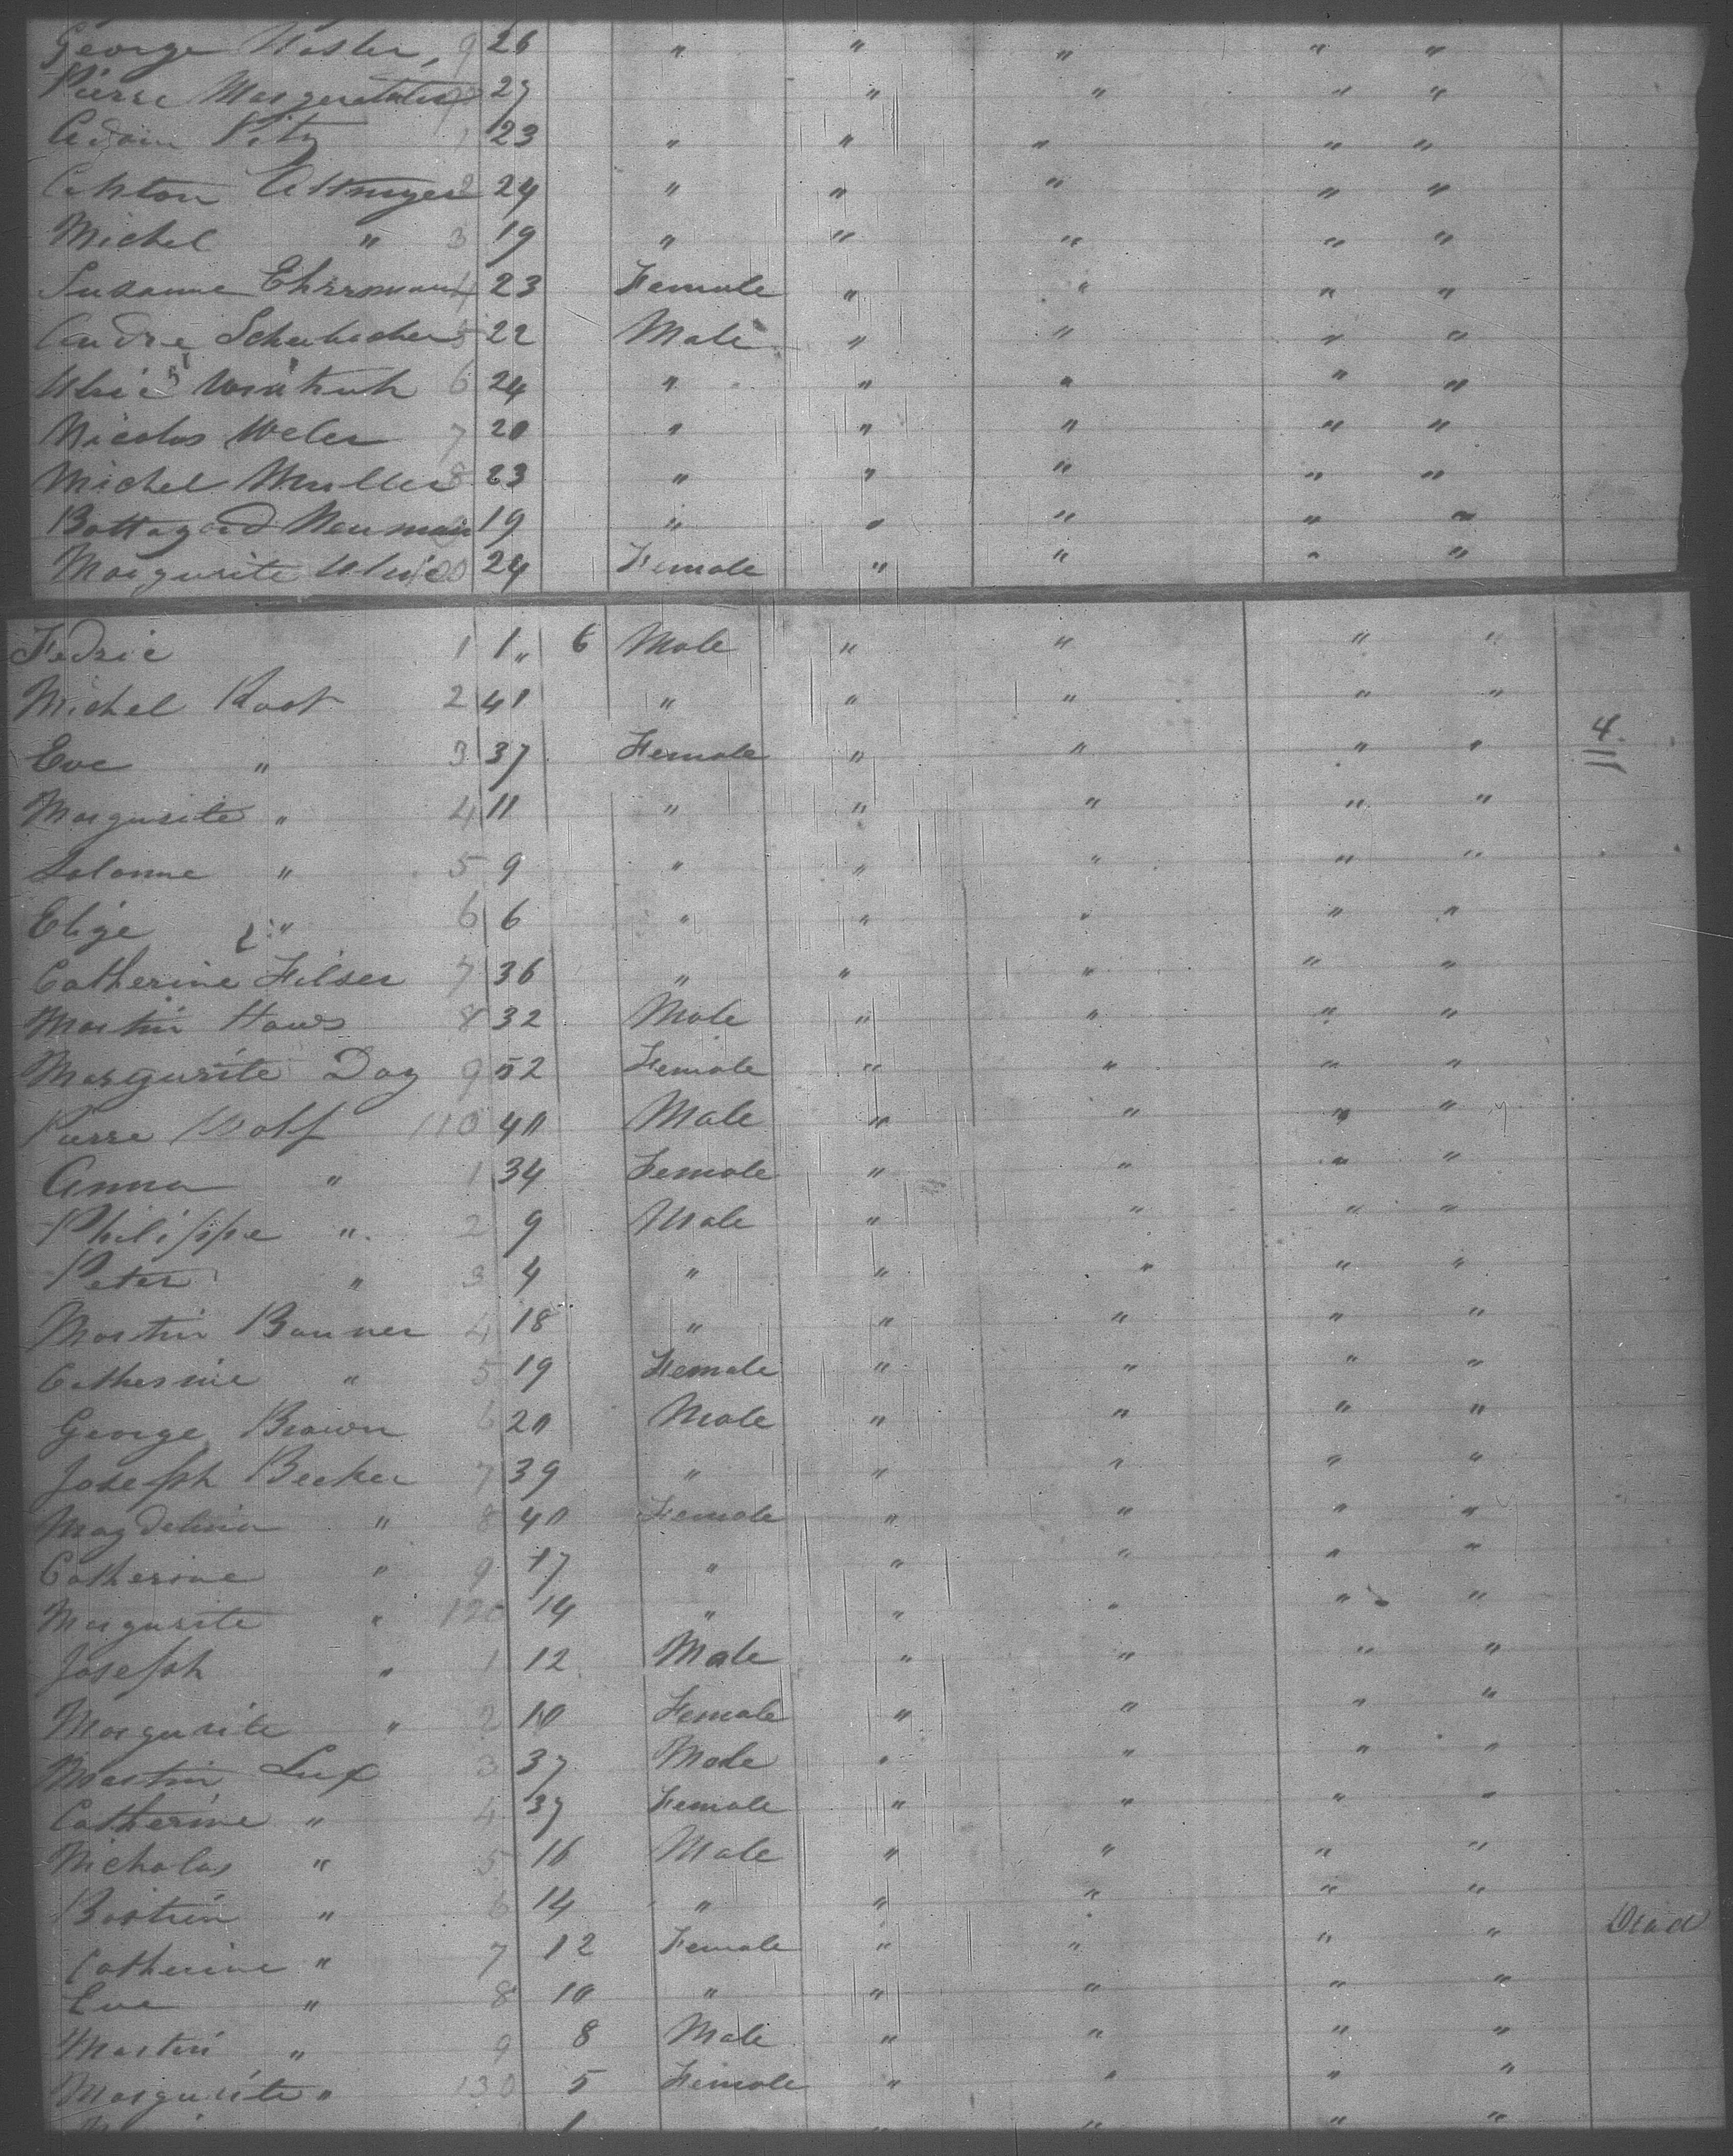 George " 9 26 " " " " "
Pierre 27 " " " "
Adam 1 23 " " " " "
Anton Altmyer 2 24 " " " " "
Michel " 3 19 " " " " "
Susanne Ehrsmann 4 23 Female " " " "
Andre Schubacher 5 22 Male " " " "
Ulric 6 24 " " " " "
Nicolas Weler 7 20 " " " " "
Michel Muller 8 23 " " " " "
Neuman 19 " " " " "
Margurite Ulric 100 24 Female " " " "
Fedric 1 1 " 6 Male " " " "
Michel Root 2 41 " " " " "
Eve " 3 37 Female " " " " 4.
Margurite " 4 11 " " " " "
Salomme " 5 9 " " " " "
Elige " 6 6 " " " " "
Catherine Filser 7 36 " " " " "
Martin Haws 8 32 Male " " " "
Margurite Day 9 52 Female " " " "
Pierre Wolf 110 40 Male " " " "
Anna " 1 34 Female " " " "
Philippe " 2 9 Male " " " "
Peter " 3 4 " " " " "
Martin Bauner 4 18 " " " " "
Catherine " 5 19 Female " " " "
George Brown 6 20 Male " " " "
Joseph Becker 7 39 " " " " "
Magdelina " 8 40 Female " " " "
Catherine " 9 17 " " " " "
Margurite " 120 14 " " " " "
Joseph " 1 12 Male " " " "
Margurite " 2 10 Female " " " "
Martin Lux 3 37 Male " " " "
Catherine " 4 37 Female " " " "
Nicholas " 5 16 Male " " " "
Bastien " 6 14 " " " " "
Catherine " 7 12 Female " " " " Dead
Eve " 8 10 " " " " "
Martin " 9 8 Male " " " "
Margurite " 130 5 Female " " " "
1 " " " "